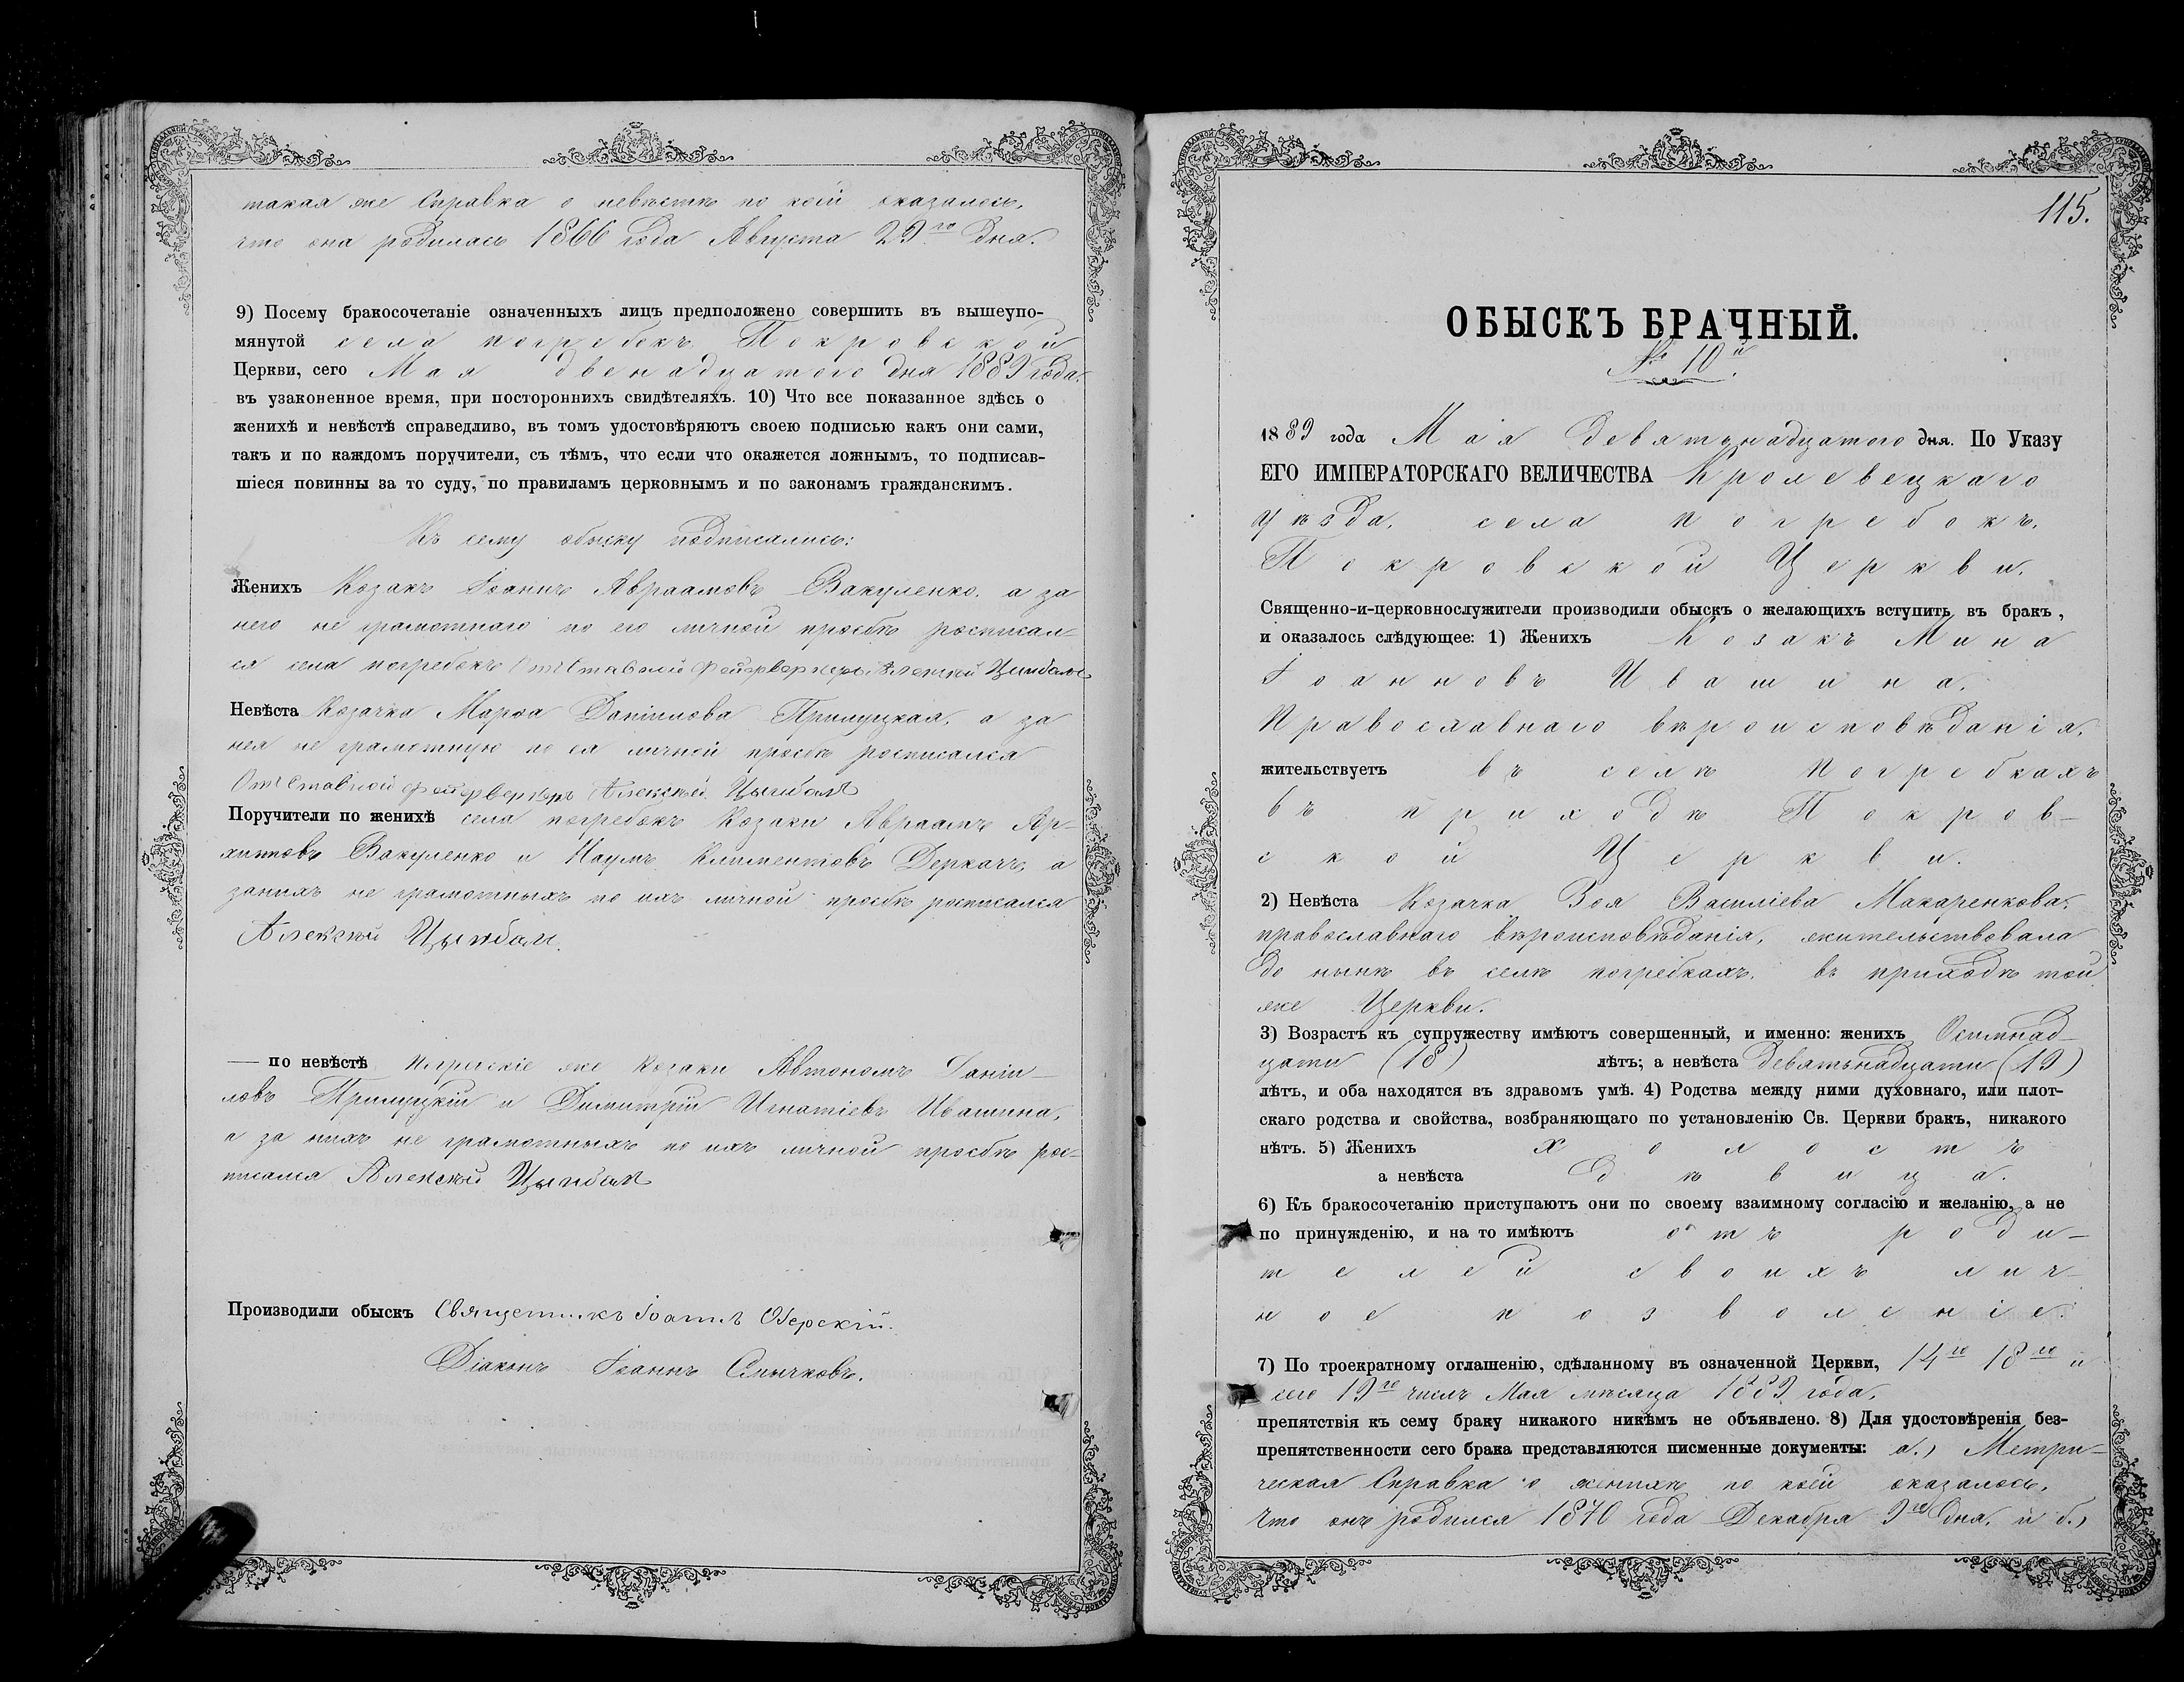 такая же Справка о невѣстѣ по коей оказалось,
что она родилась 1866 года Августа 29го дня.
9) Посему бракосочетаніе означенныхъ лицъ предположено совершить въ вышеупо-
мянутой села погребокъ Покровской
Церкви, сего Мая двенадцатого дня 1889 года.
въ узаконенное время, при постороннихъ свидѣтеляхъ. 10) Что все показанное здѣсь о
женихѣ и невѣстѣ справедливо, въ томъ удостовѣряютъ своею подписью какъ они сами,
такъ и по каждомъ поручители, съ тѣмъ, что если что окажется ложнымъ, то подписав-
шіеся повинны за то суду, по правиламъ церковнымъ и по законамъ гражданскимъ.
Къ сему обыску подписались:
Женихъ Козакъ Іоаннъ Авраамовъ Вакуленко. а за
него не грамотнаго по его личной просьбѣ росписал-
ся села погребокъ Отставной Фейерверкеръ Алексей Цымбалъ
Невѣста Козачка Марѳа Даніилова Прилуцкая, а за
нея не грамотную по ея личной просьбѣ росписался
Отставной фейерверкеръ Алексѣй Цымбалъ
Поручители по женихѣ села погребокъ Козаки Авраамъ Ар-
хиповъ Вакуленко и Наумъ Климентовъ Деркачъ, а
занихъ не грамотныхъ по ихъ личной просьбѣ росписался
Алексѣй Цымбалъ.
— по невѣстѣ же Козаки Автономъ Даніи-
ловъ Прилуцкій и Димитрій Игнатіевъ Ивашина,
а за нихъ не грамотныхъ по ихъ личной просьбѣ рос-
писался Алексѣй Цымбалъ
Производили обыскъ Священникъ Іоаннъ Озерскій.
Діаконъ Іоаннъ Смычковъ.
115.
ОБЫСКЪ БРАЧНЫЙ.
№ 10й
1889 года Маія девятьнадцатого дня. По Указу
ЕГО ИМПЕРАТОРСКАГО ВЕЛИЧЕСТВА Кролевецкаго
уѣзда, села погребокъ,
Покровской Церкви.
Священно-и-церковнослужители производили обыскъ о желающихъ вступить въ бракъ,
и оказалось слѣдующее: 1) Женихъ Козакъ Мина
Іоанновъ Ивашина,
Православнаго вѣроисповѣданія,
жительствуетъ въ селѣ Погребкахъ
въ приходѣ Покров-
ской Церкви.
2) Невѣста Козачка Зоя Василіева Макаренкова,
православнаго вѣроисповѣданія, жительствовала
до нынѣ въ селѣ погребкахъ, въ приходѣ той
же Церкви.
3) Возрастъ къ супружеству имѣютъ совершенный, и именно: женихъ Осимнад-
цати (18) лѣтъ; а невѣста Девятьнадцати (19)
лѣтъ, и оба находятся въ здравомъ умѣ. 4) Родства между ними духовнаго, или плот-
скаго родства и свойства, возбраняющаго по установленію Св. Церкви бракъ, никакого
нѣтъ. 5) Женихъ холостъ
а невѣста дѣвица.
6) Къ бракосочетанію приступаютъ они по своему взаимному согласію и желанію, а не
по принужденію, и на то имѣютъ отъ роди-
телей своихъ лич-
ное позволеніе.
7) По троекратному оглашенію, сдѣланному въ означенной Церкви, 14го 18го и
сего 19го числъ Мая мѣсяца 1889 года,
препятствія къ сему браку никакого никѣмъ не объявлено. 8) Для удостовѣренія без-
препятственности сего брака представляются писменные документы: а.) Метри-
ческая Справка о женихѣ по коей оказалось,
что онъ родился 1870 года Декабря 9го дня, и б.)